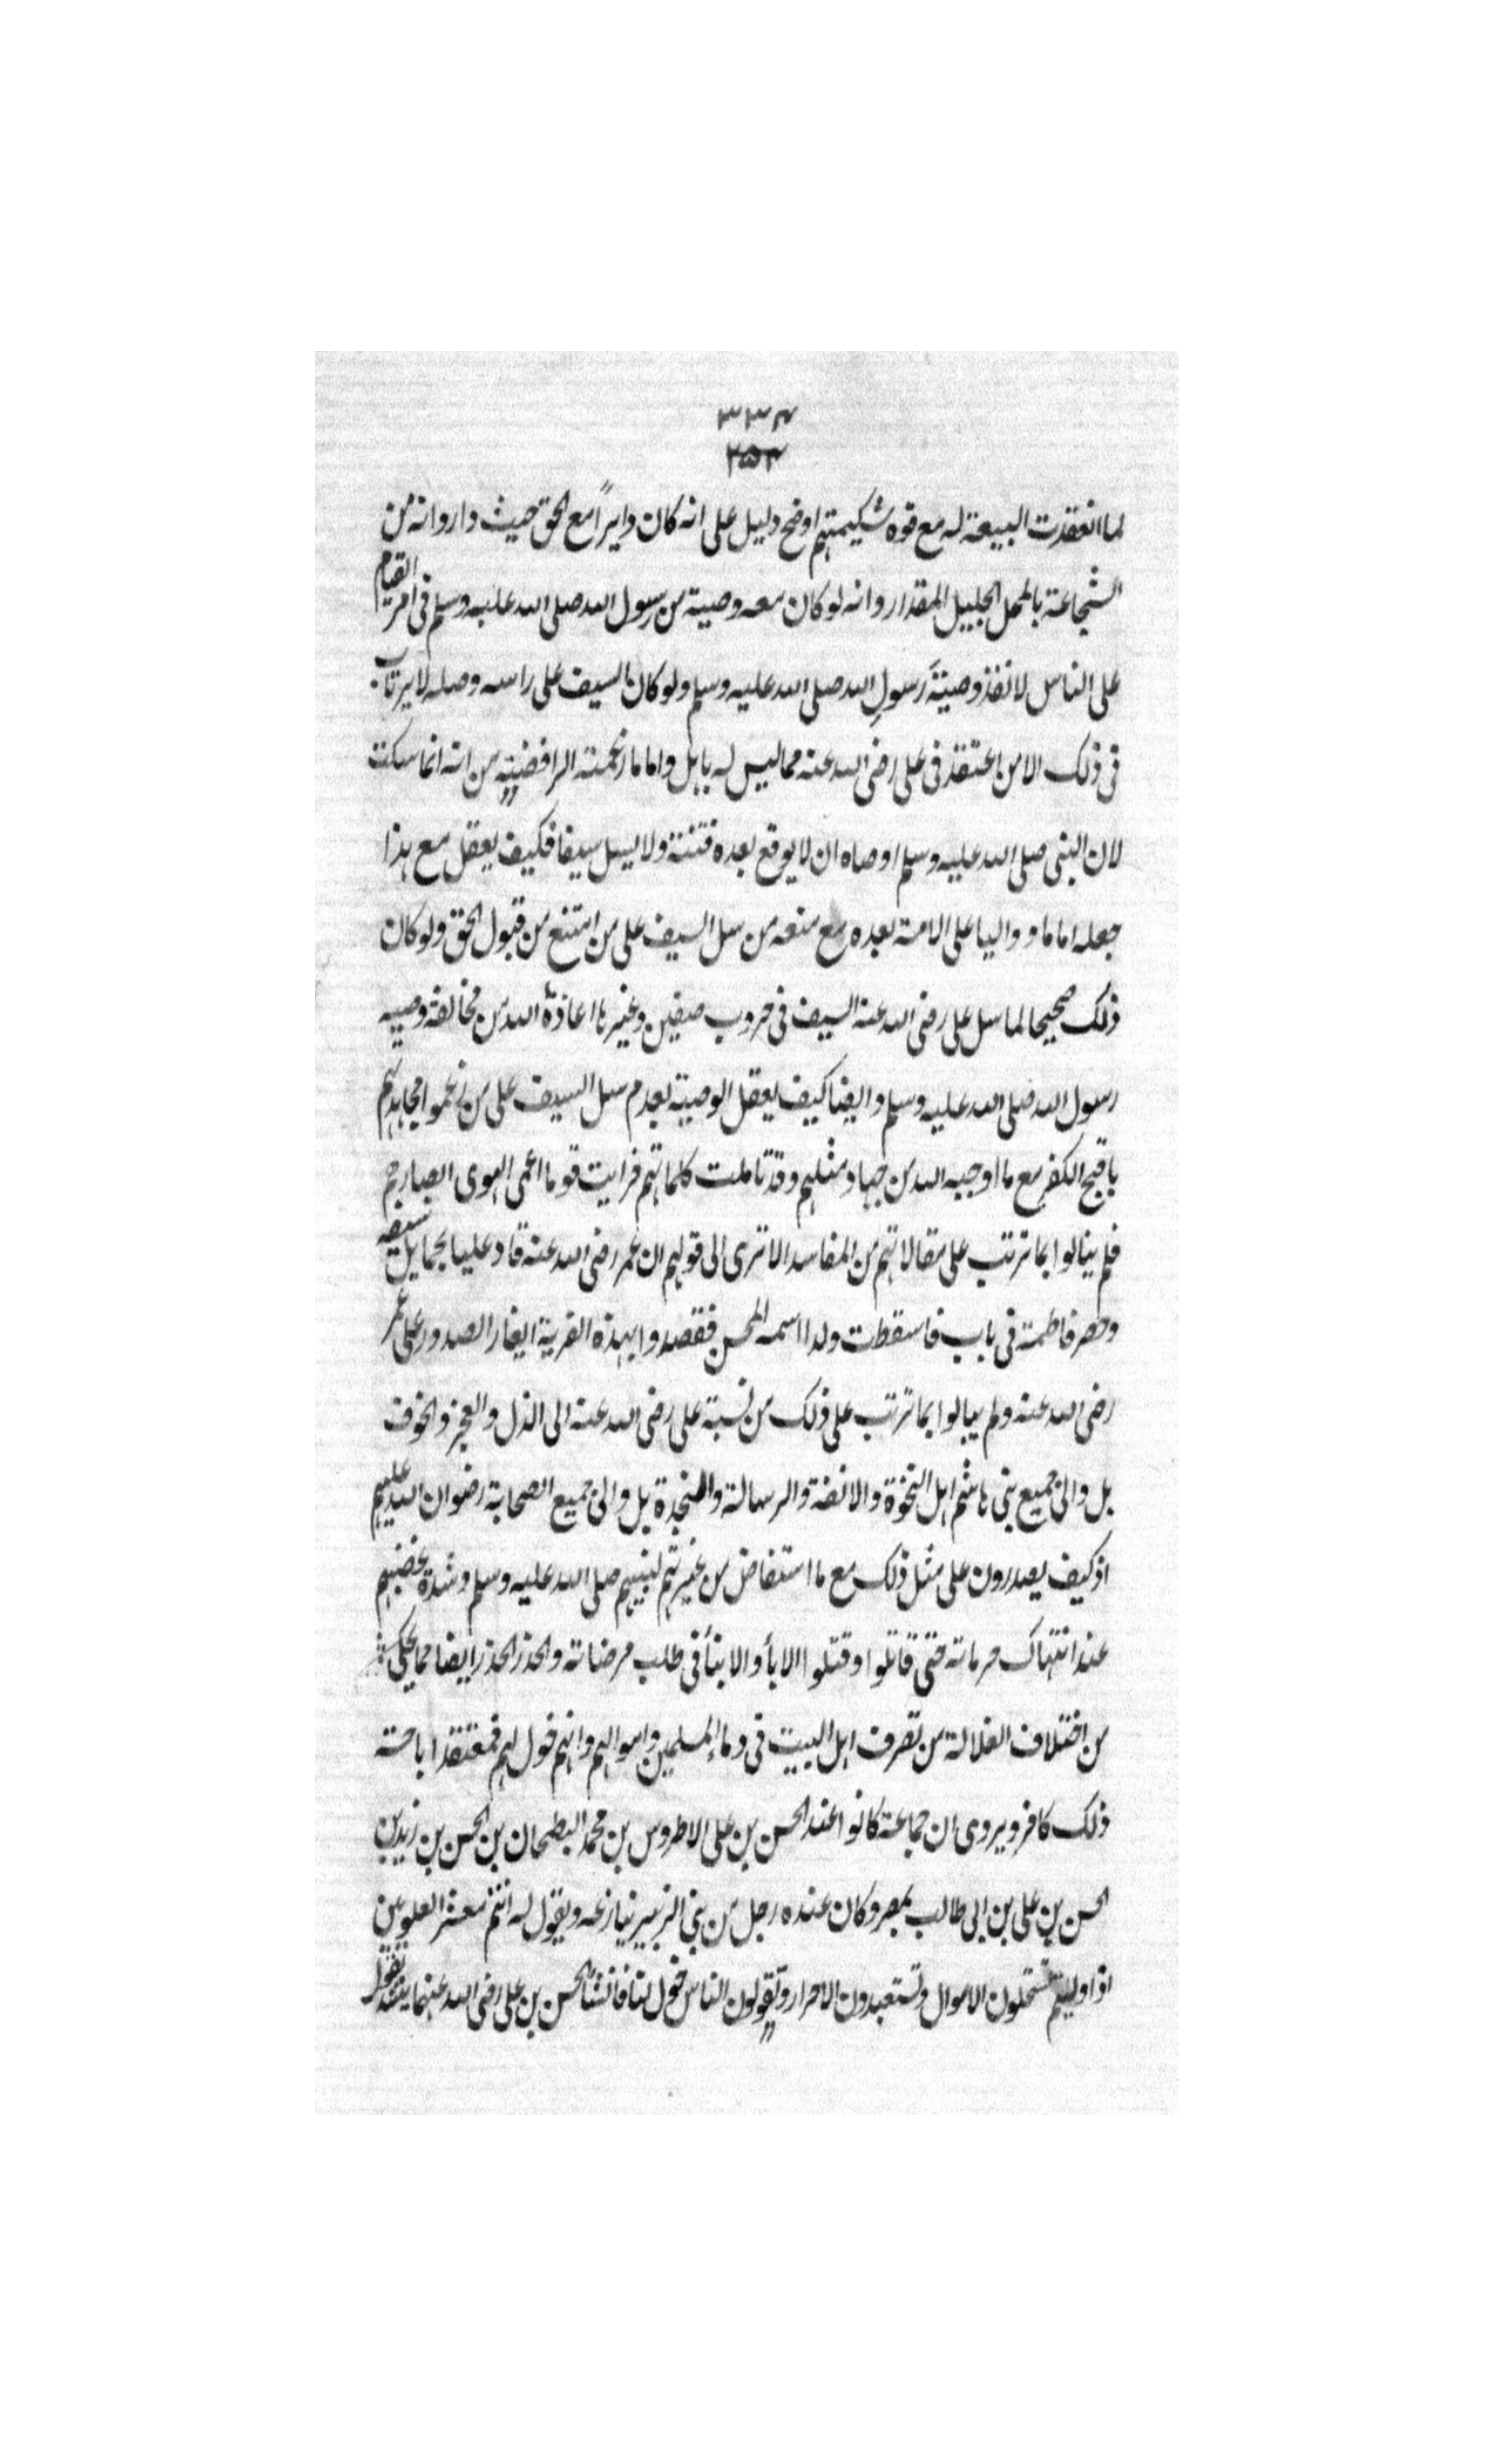 ٣٣٤
٢٥٢
لما انعقدت البيعة له مع قوه شكيمتهم اوضح دليل على انه كان دايراً مع الحق حيث دار وانه من
الشجاعة بالمحل الجليل المقدار وانه لو كان معه وصية من رسول الله صلى الله عليه وسلم فى امر القيام
على الناس لانفذ وصيةَ رسولِ الله صلى الله عليه وسلم ولو كان السيف على راسه وصله لا يرتاب
فى ذلك الا من اعتقد فى على رضى الله عنه مما ليس له باهل واما ما زعمته الرافضية من انه انما سكت
لان النبى صلى الله عليه وسلم اوصاه ان لا يوقع بعده فتنة ولا يسل سيفا فكيف يعقل مع هذا
جعله اماما و واليا على الامة بعده مع منعه من سل السيف على من امتنع من قبول الحق ولو كان
ذلك صحيحا لما سل على رضى الله عنه السيف فى حروب صفين وغيرها اعاذهُ الله من مخالفة وصيه
رسول الله صلى الله عليه وسلم وايضا كيف يعقل الوصية بعدم سل السيف على من زعموا مجاهرتهم
باقبح الكفر مع ما اوجبه الله من جهاد مثلهم وقد تاملت كلماتهم فرايت قوما اعمى الهوى ابصارهم
فلم ينالوا بما ترتب على مقالاتهم من المفاسد الا ترى الى قولهم ان عمر رضى الله عنه قاد عليا بحمايل سيفه
وحصر فاطمة فى باب فاسقطت ولدا اسمه المحسن فقصدوا بهذه الفرية ايغار الصدور على عمر
رضى الله عنه ولم يبالوا بما ترتب على ذلك من نسبة على رضى الله عنه الى الذل والعجز والخوف
بل والى جميع بنى هاشم اهل النخوة والانفة والرسالة والنجدة بل والى جميع الصحابة رضوان الله عليهم
اذ كيف يصدرون على مثل ذلك مع ما استفاض من غيرتهم لنبيهم صلى الله عليه وسلم وشدة غضبهم
عند انتهاك حرماته حتى قاتلوا وقتلوا الابأ والابنأ فى طلب مرضاته والحذر الحذر ايضا مما يحكى
من اختلاف الغلاة من تصرف اهل البيت فى دماء المسلمين واموالهم وانهم خول لهم فمعتقد اباحة
ذلك كافر ويروى ان جماعة كانوا عند الحسن بن على الاطروس بن محمد البطحان بن الحسن بن زيد بن
الحسن بن على بن ابى طالب بمصر وكان عنده رجل من بنى الزبير ينازعه ويقول له انتم معشر العلويين
اذا وليتم تستحلون الاموال وتستعبدون الاحرار وتقولون الناس خول لنا فانشأ الحسن بن على رضى الله عنهما ينشد يقول